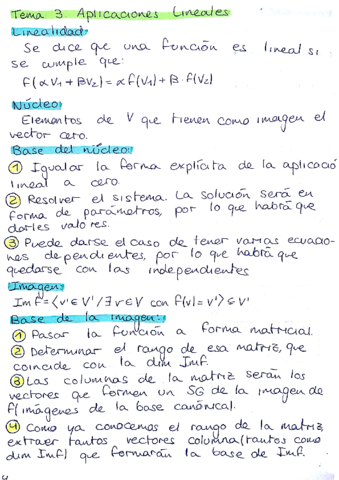 Tema 3. Aplicaciones Lineales
Linealidad:
Se dice que una función es lineal si
se cumple que:
f(αV₁+βV₂)=αf(V₁)+β·f(V₂)
Núcleo:
Elementos de V que tienen como imagen el
vector cero.
Base del núcleo:
① Igualar la forma explícita de la aplicació
lineal a cero.
② Resolver el sistema. La solución será en
forma de parámetros, por lo que habrá que
darles valores.
③ Puede darse el caso de tener varias ecuacio-
nes dependientes, por lo que habrá que
quedarse con las independientes
Imagen:
Im f = {v'∈V'/∃v∈V con f(v)=v'}⊆V'
Base de la imagen:
① Pasar la función a forma matricial.
② Determinar el rango de esa matriz, que
coincide con la dim Imf.
③ Las columnas de la matriz serán los
vectores que formen un SG de la imagen de
f(imágenes de la base canónica).
④ Como ya conocemos el rango de la matriz,
extraer tantos vectores columna(tantos como
dim Imf) que formarán la base de Imf.